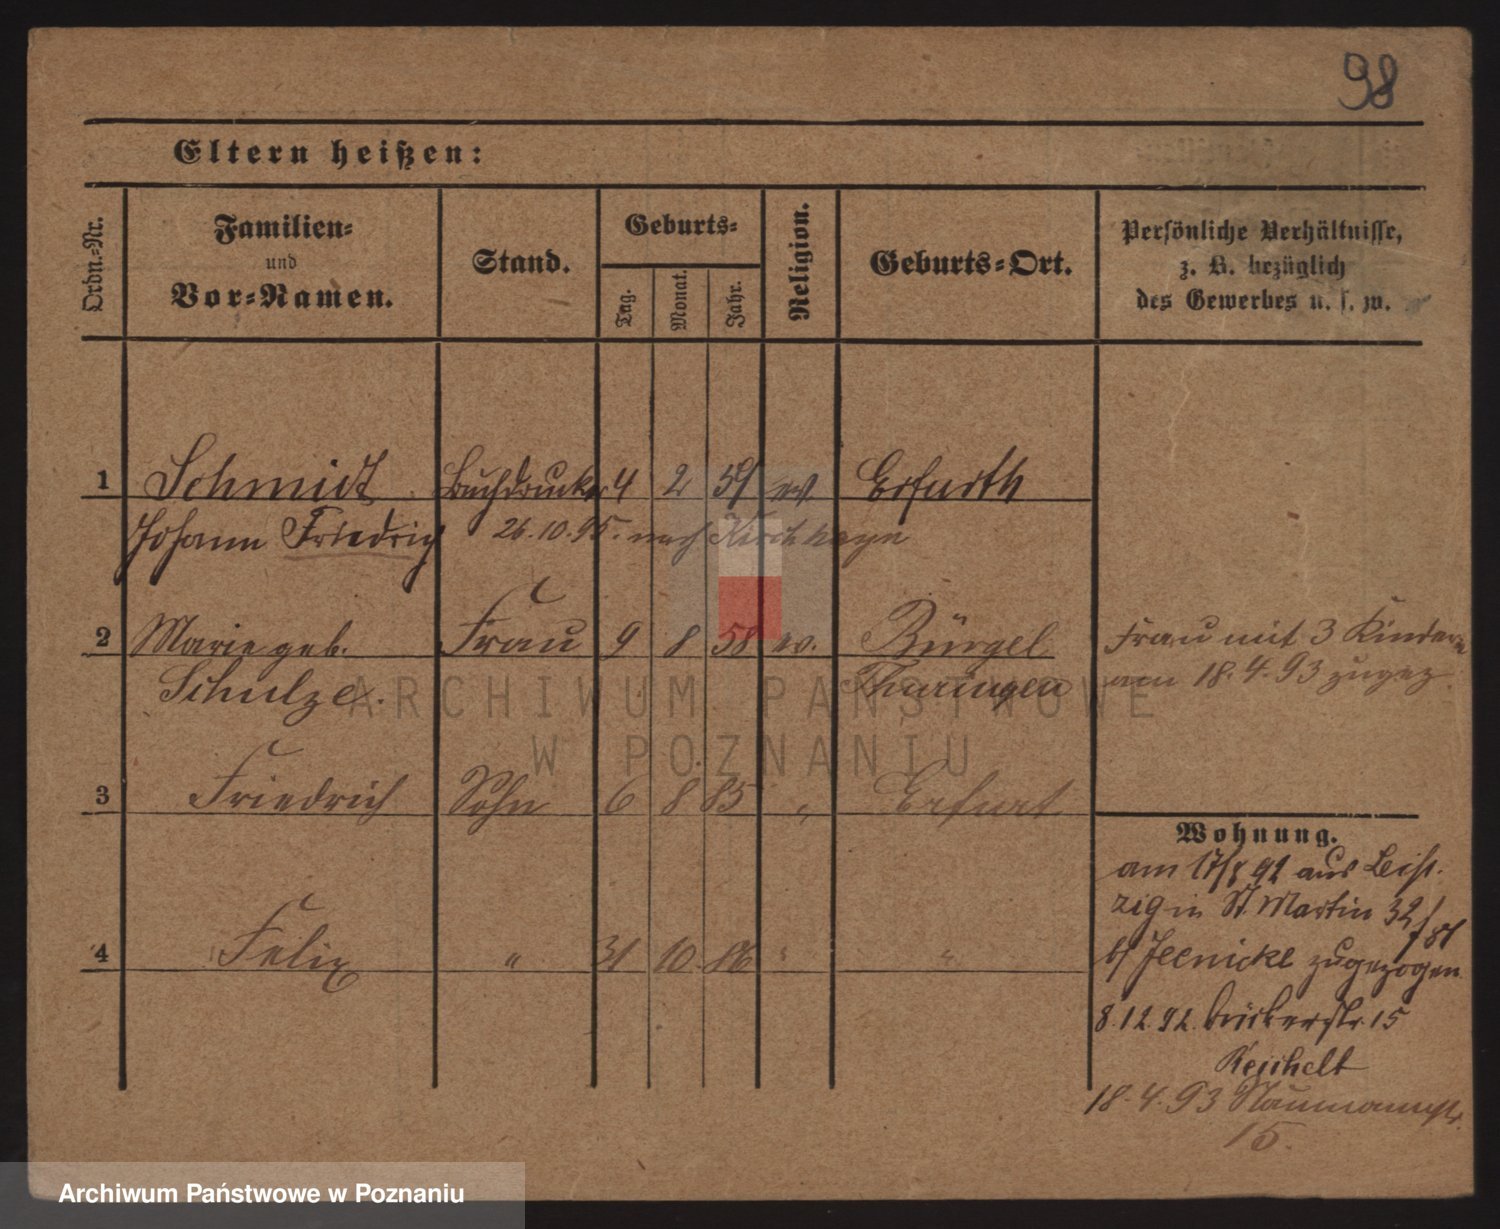 98
Eltern heißen:
Ordn.-Nr.
Familien-
und
Vor-Namen.
Stand.
Geburts-
Tag.
Monat.
Jahr.
Religion.
Geburts-Ort.
Persönliche Verhältnisse,
z. B. bezüglich
des Gewerbes u. s. w.
1 Schmidt Buchdrucker 4 2 59 ev. Erfurth
Johann Friedrich 26.10.95. nach Kirchhayn
2 Marie geb. Frau 9 8 58 ev. Bürgel
Schulze. Thüringen
Frau mit 3 Kindern
am 18.4.93 zugez.
3 Friedrich Sohn 6 8 85 " Erfurt
4 Felix " 31 10 86 " "
Wohnung.
am 17/8 92 aus Leip-
zig in St. Martin 32
b/ zugezogen
8.12.92. Bäckerstr. 15
Reichelt
18.4.93 Naumannstr.
15.
ARCHIWUM PAŃSTWOWE
W POZNANIU
Archiwum Państwowe w Poznaniu